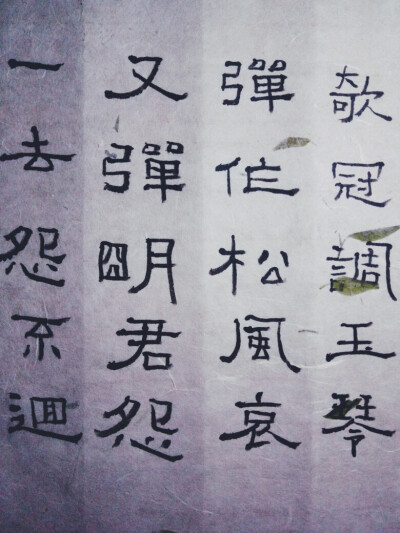 欹冠調玉琴
彈作松風哀
又彈明君怨
一去怨不迴